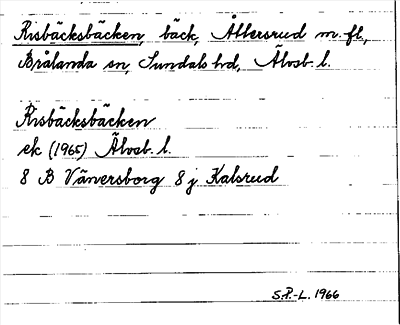 Risbäcksbäcken, bäck, Åttersrud m.fl,
Brålanda sn, Sundals hd, Älvsb. l.
Risbäcksbäcken
ek (1965) Älvsb. l.
8 B Vänersborg 8 j Kalsrud
S.P.-L. 1966